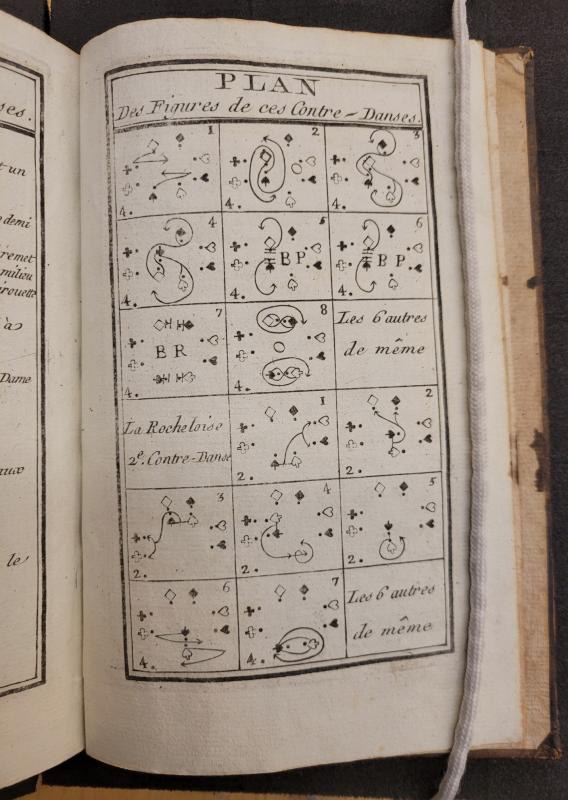 PLAN
Des Figures de ces Contre-Danses.
1
4.
2
4.
3
4.
4
4.
5
B P
4.
6
B P
4.
7
B R
4.
8
4.
Les 6 autres
de même
La Rocheloise
2e. Contre-Danse
1
2.
2
2.
3
2.
4
2.
5
2.
6
4.
7
4.
Les 6 autres
de même
ses.
t un
demi
remet
milieu
irouette
à
Dame
aux
le